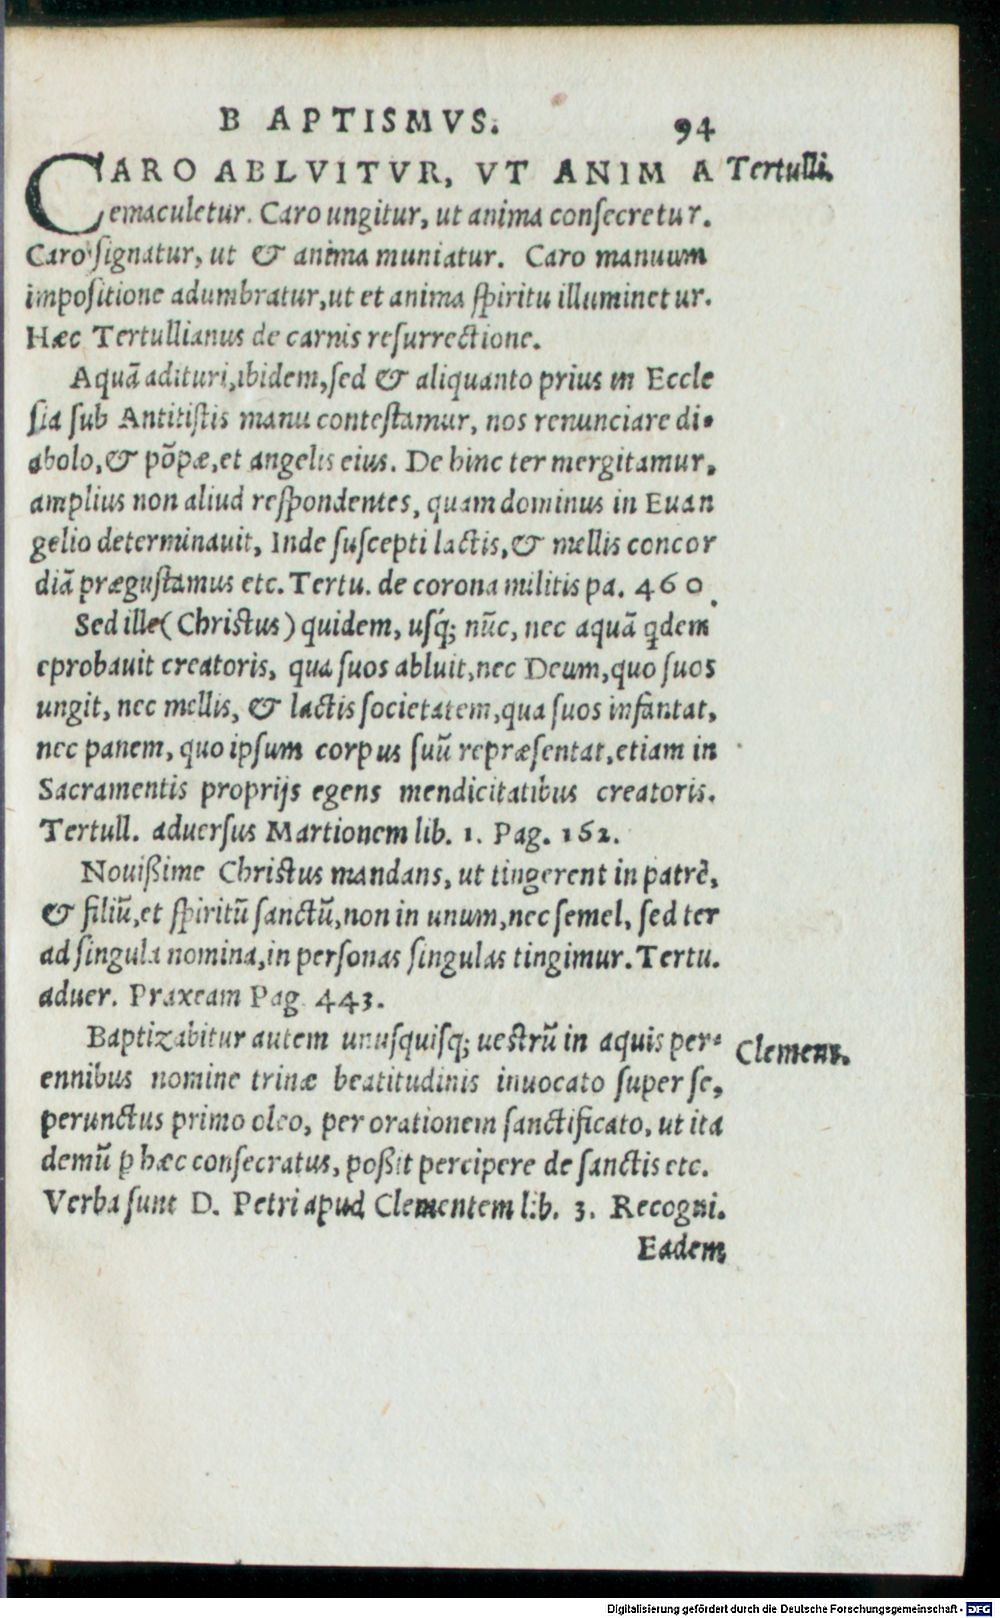 BAPTISMVS. 94
CARO ABLVITVR, VT ANIMA Tertulli.
emaculetur. Caro ungitur, ut anima consecretur.
Caro signatur, ut & anima muniatur. Caro manuum
impositione adumbratur, ut et anima spiritu illuminetur.
Hæc Tertullianus de carnis resurrectione.
Aquã adituri, ibidem, sed & aliquanto prius in Eccle
sia sub Antitistis manu contestamur, nos renunciare di-
abolo, & põpæ, et angelis eius. De hinc ter mergitamur,
amplius non aliud respondentes, quam dominus in Euan
gelio determinauit, Inde suscepti lactis, & mellis concor
diã prægustamus etc. Tertu. de corona militis pa. 460.
Sed ille (Christus) quidem, usq́; nũc, nec aquã q̃dem
eprobauit creatoris, qua suos abluit, nec Deum, quo suos
ungit, nec mellis, & lactis societatem, qua suos infantat,
nec panem, quo ipsum corpus suũ repræsentat, etiam in
Sacramentis proprijs egens mendicitatibus creatoris.
Tertull. aduersus Martionem lib. 1. Pag. 162.
Nouißime Christus mandans, ut tingerent in patrẽ,
& filiũ, et spiritũ sanctũ, non in unum, nec semel, sed ter
ad singula nomina, in personas singulas tingimur. Tertu.
aduer. Praxeam Pag. 443.
Baptizabitur autem unusquisq; uestrũ in aquis per- Clemens.
ennibus nomine trinæ beatitudinis inuocato super se,
perunctus primo oleo, per orationem sanctificato, ut ita
demũ p hæc consecratus, poßit percipere de sanctis etc.
Verba sunt D. Petri apud Clementem lib. 3. Recogni.
Eadem
Digitalisierung gefördert durch die Deutsche Forschungsgemeinschaft - DFG